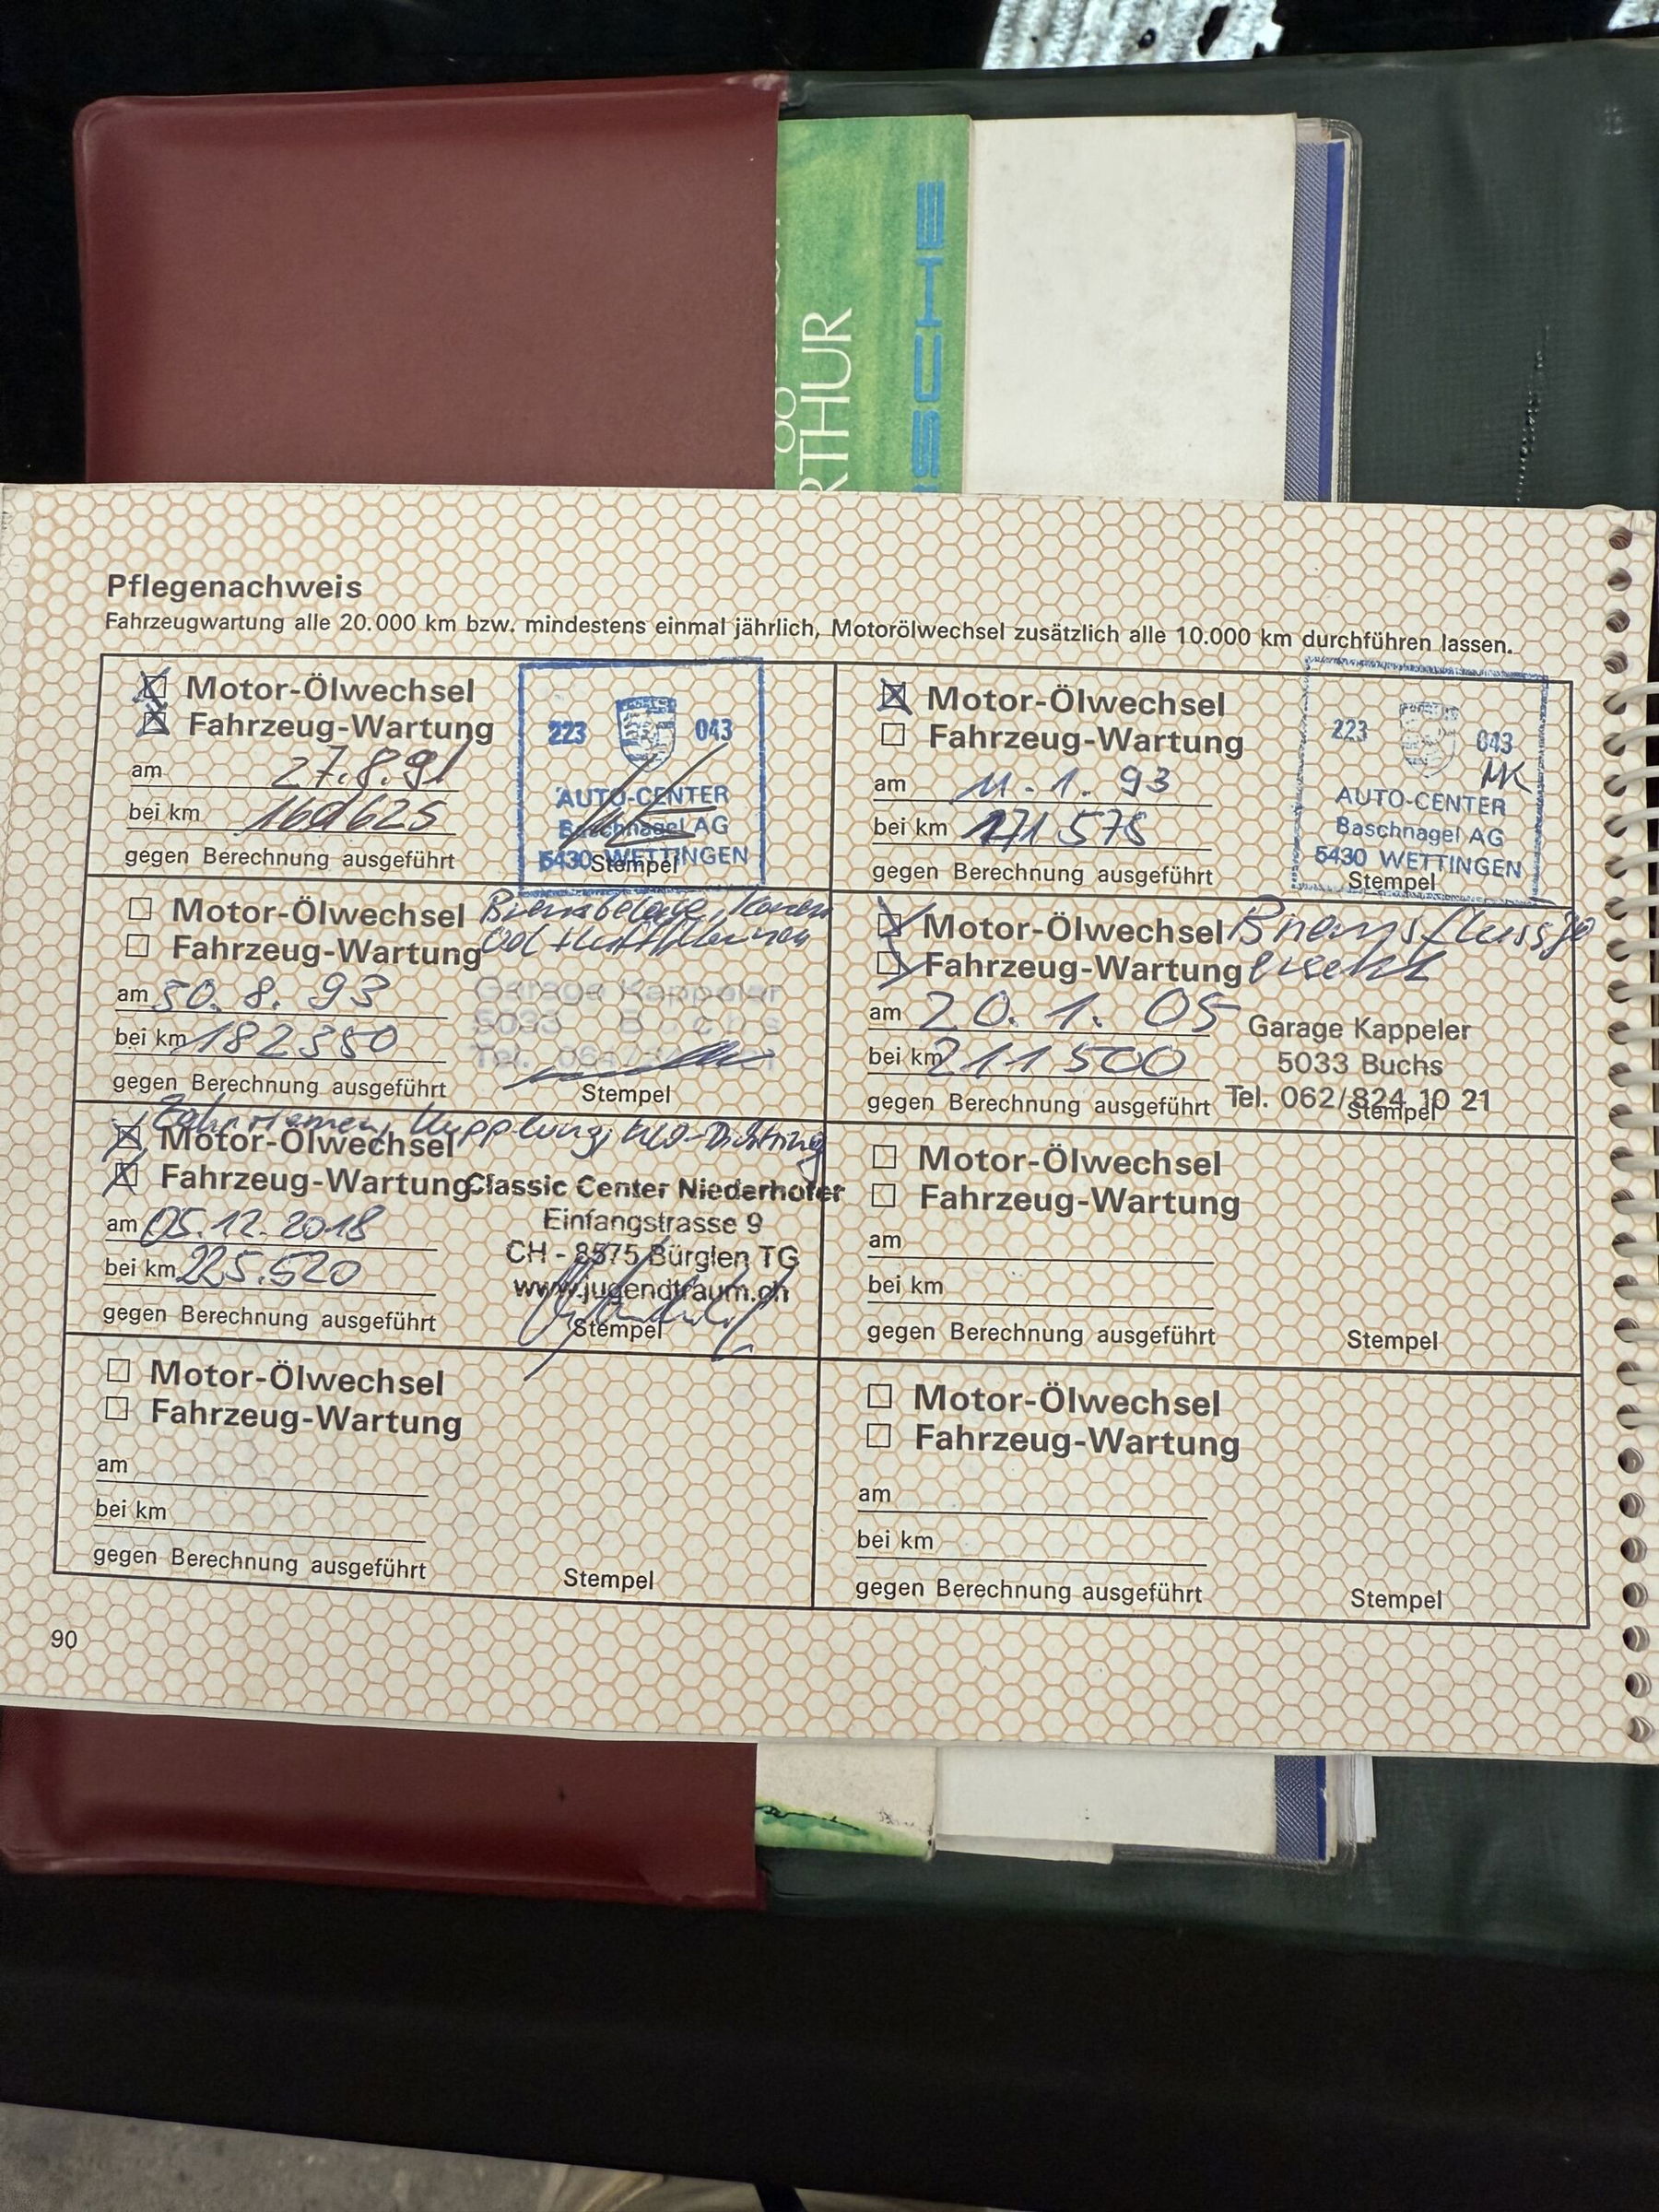 RTHUR
Pflegenachweis
Fahrzeugwartung alle 20.000 km bzw. mindestens einmal jährlich, Motorölwechsel zusätzlich alle 10.000 km durchführen lassen.
Motor-Ölwechsel
Fahrzeug-Wartung
am 27.8.91
bei km
gegen Berechnung ausgeführt
223 043
AUTO-CENTER
Baschnagel AG
5430 WETTINGEN
Stempel
Motor-Ölwechsel
Fahrzeug-Wartung
am 11.1.93
bei km 171 575
gegen Berechnung ausgeführt
223 043
MK
AUTO-CENTER
Baschnagel AG
5430 WETTINGEN
Stempel
Motor-Ölwechsel Bremsbeläge,
Fahrzeug-Wartung
am 30.8.93
bei km 182350
gegen Berechnung ausgeführt
Garage Kappeler
5033 Buchs
Tel.
Stempel
Motor-Ölwechsel Bremsflüssge
Fahrzeug-Wartung ersetzt
am 20.1.05
bei km 211500
gegen Berechnung ausgeführt
Garage Kappeler
5033 Buchs
Tel. 062/824 10 21
Stempel
Zahnriemen, Kupplung,
Motor-Ölwechsel
Fahrzeug-Wartung
am 05.12.2018
bei km 225.520
gegen Berechnung ausgeführt
Classic Center Niederhofer
Einfangstrasse 9
CH - 8575 Bürglen TG
www.jugendtraum.ch
Stempel
Motor-Ölwechsel
Fahrzeug-Wartung
am
bei km
gegen Berechnung ausgeführt
Stempel
Motor-Ölwechsel
Fahrzeug-Wartung
am
bei km
gegen Berechnung ausgeführt
Stempel
Motor-Ölwechsel
Fahrzeug-Wartung
am
bei km
gegen Berechnung ausgeführt
Stempel
90